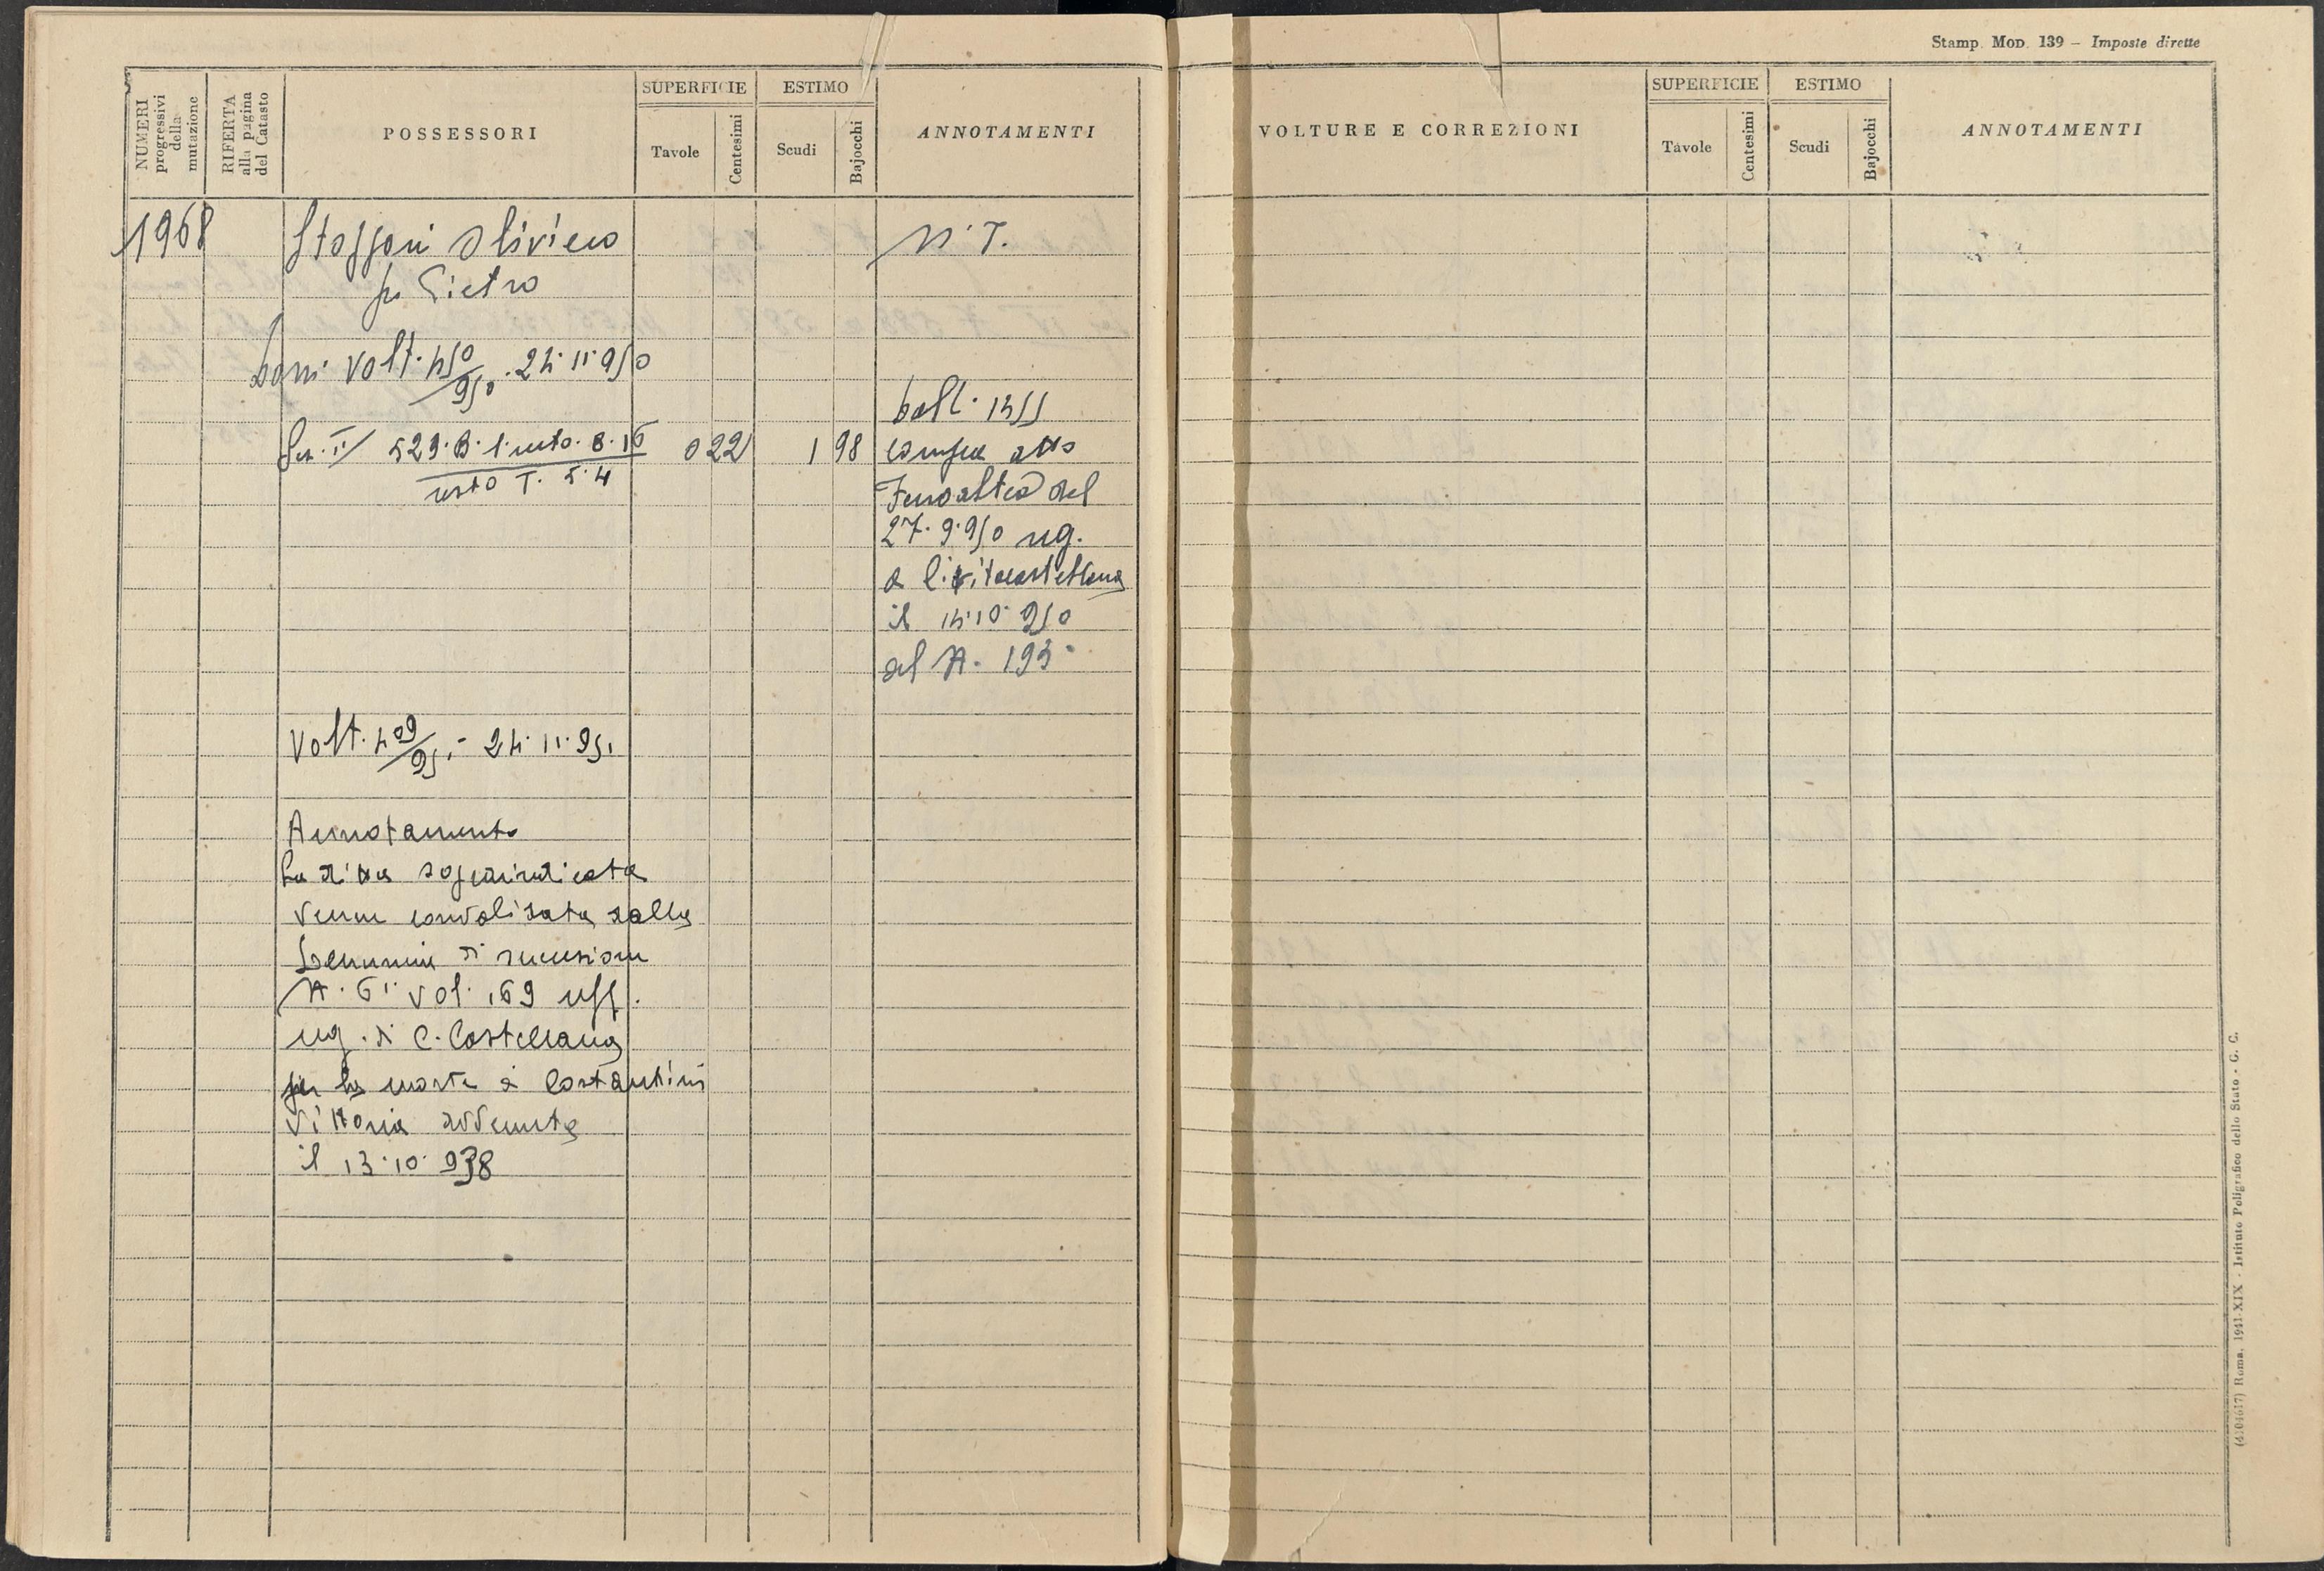 Stamp. Mod. 139 – Imposte dirette
NUMERI progressivi della mutazione
RIFERTA alla pagina del Catasto
POSSESSORI
SUPERFICIE
Tavole
Centesimi
ESTIMO
Scudi
Bajocchi
ANNOTAMENTI
1968
Oliviero
fu Pietro
N. T.
Volt. 450/950 . 24.11.950
Sez. 523
resto T. 5.4
0 22
1 98
compra atto
del
27.9.950 reg.
a Civitacastellana
il 14.10.950
al N. 193
Volt. 409/951 - 24.11.951
Annotamento
La ditta sopraindicata
venne convalidata dalla
Denunzia di successione
N. 61 vol. 169 uff.
reg. di C. Castellana
per la morte di Costantini
Vittoria avvenuta
il 13.10.938
VOLTURE E CORREZIONI
SUPERFICIE
Tavole
Centesimi
ESTIMO
Scudi
Bajocchi
ANNOTAMENTI
(4104617) Roma, 1941-XIX - Istituto Poligrafico dello Stato - G. C.